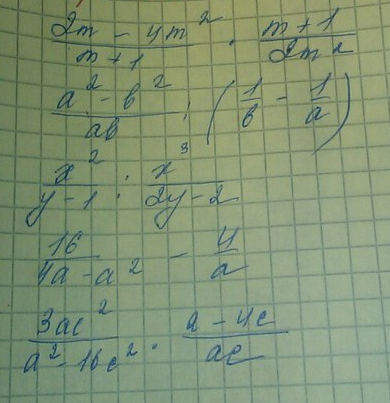 (2m - 4m²)/(m + 1) · (m + 1)/(2m²)
(a² - b²)/(ab) : (1/b - 1/a)
x²/(y - 1) : x³/(2y - 2)
16/(4a - a²) - 4/a
3ac²/(a² - 16c²) · (a - 4c)/(ac)